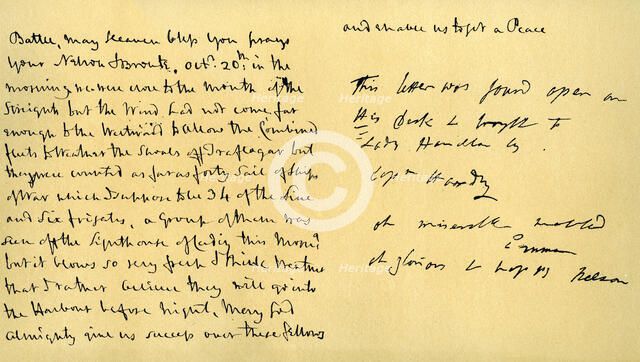 Battle, may Heaven bless you prays
your Nelson & Bronte, Octr. 20th: in the
morning we were close to the mouth of the
Streights but the Wind had not come far
enough to the Westward to allow the Combined
fleets to Weather the Shoals off Traflagar but
they were counted as far as forty Sail of Ships
of War which I suppose to be 34 of the Line
and Six frigates, a Group of them was
seen off the Lighthouse of Cadiz this Morng
but it blows so very fresh I think Weather
that I rather believe they will go into
the Harbour before night, May God
Almighty give us success over these fellows
and enable us to get a Peace
This letter was found open on
His Desk & brought to
Lady Hamilton by
Captn Hardy
oh miserable wretched
Emma
oh glorious & happy Nelson
Heritage
Heritage
Heritage
Heritage